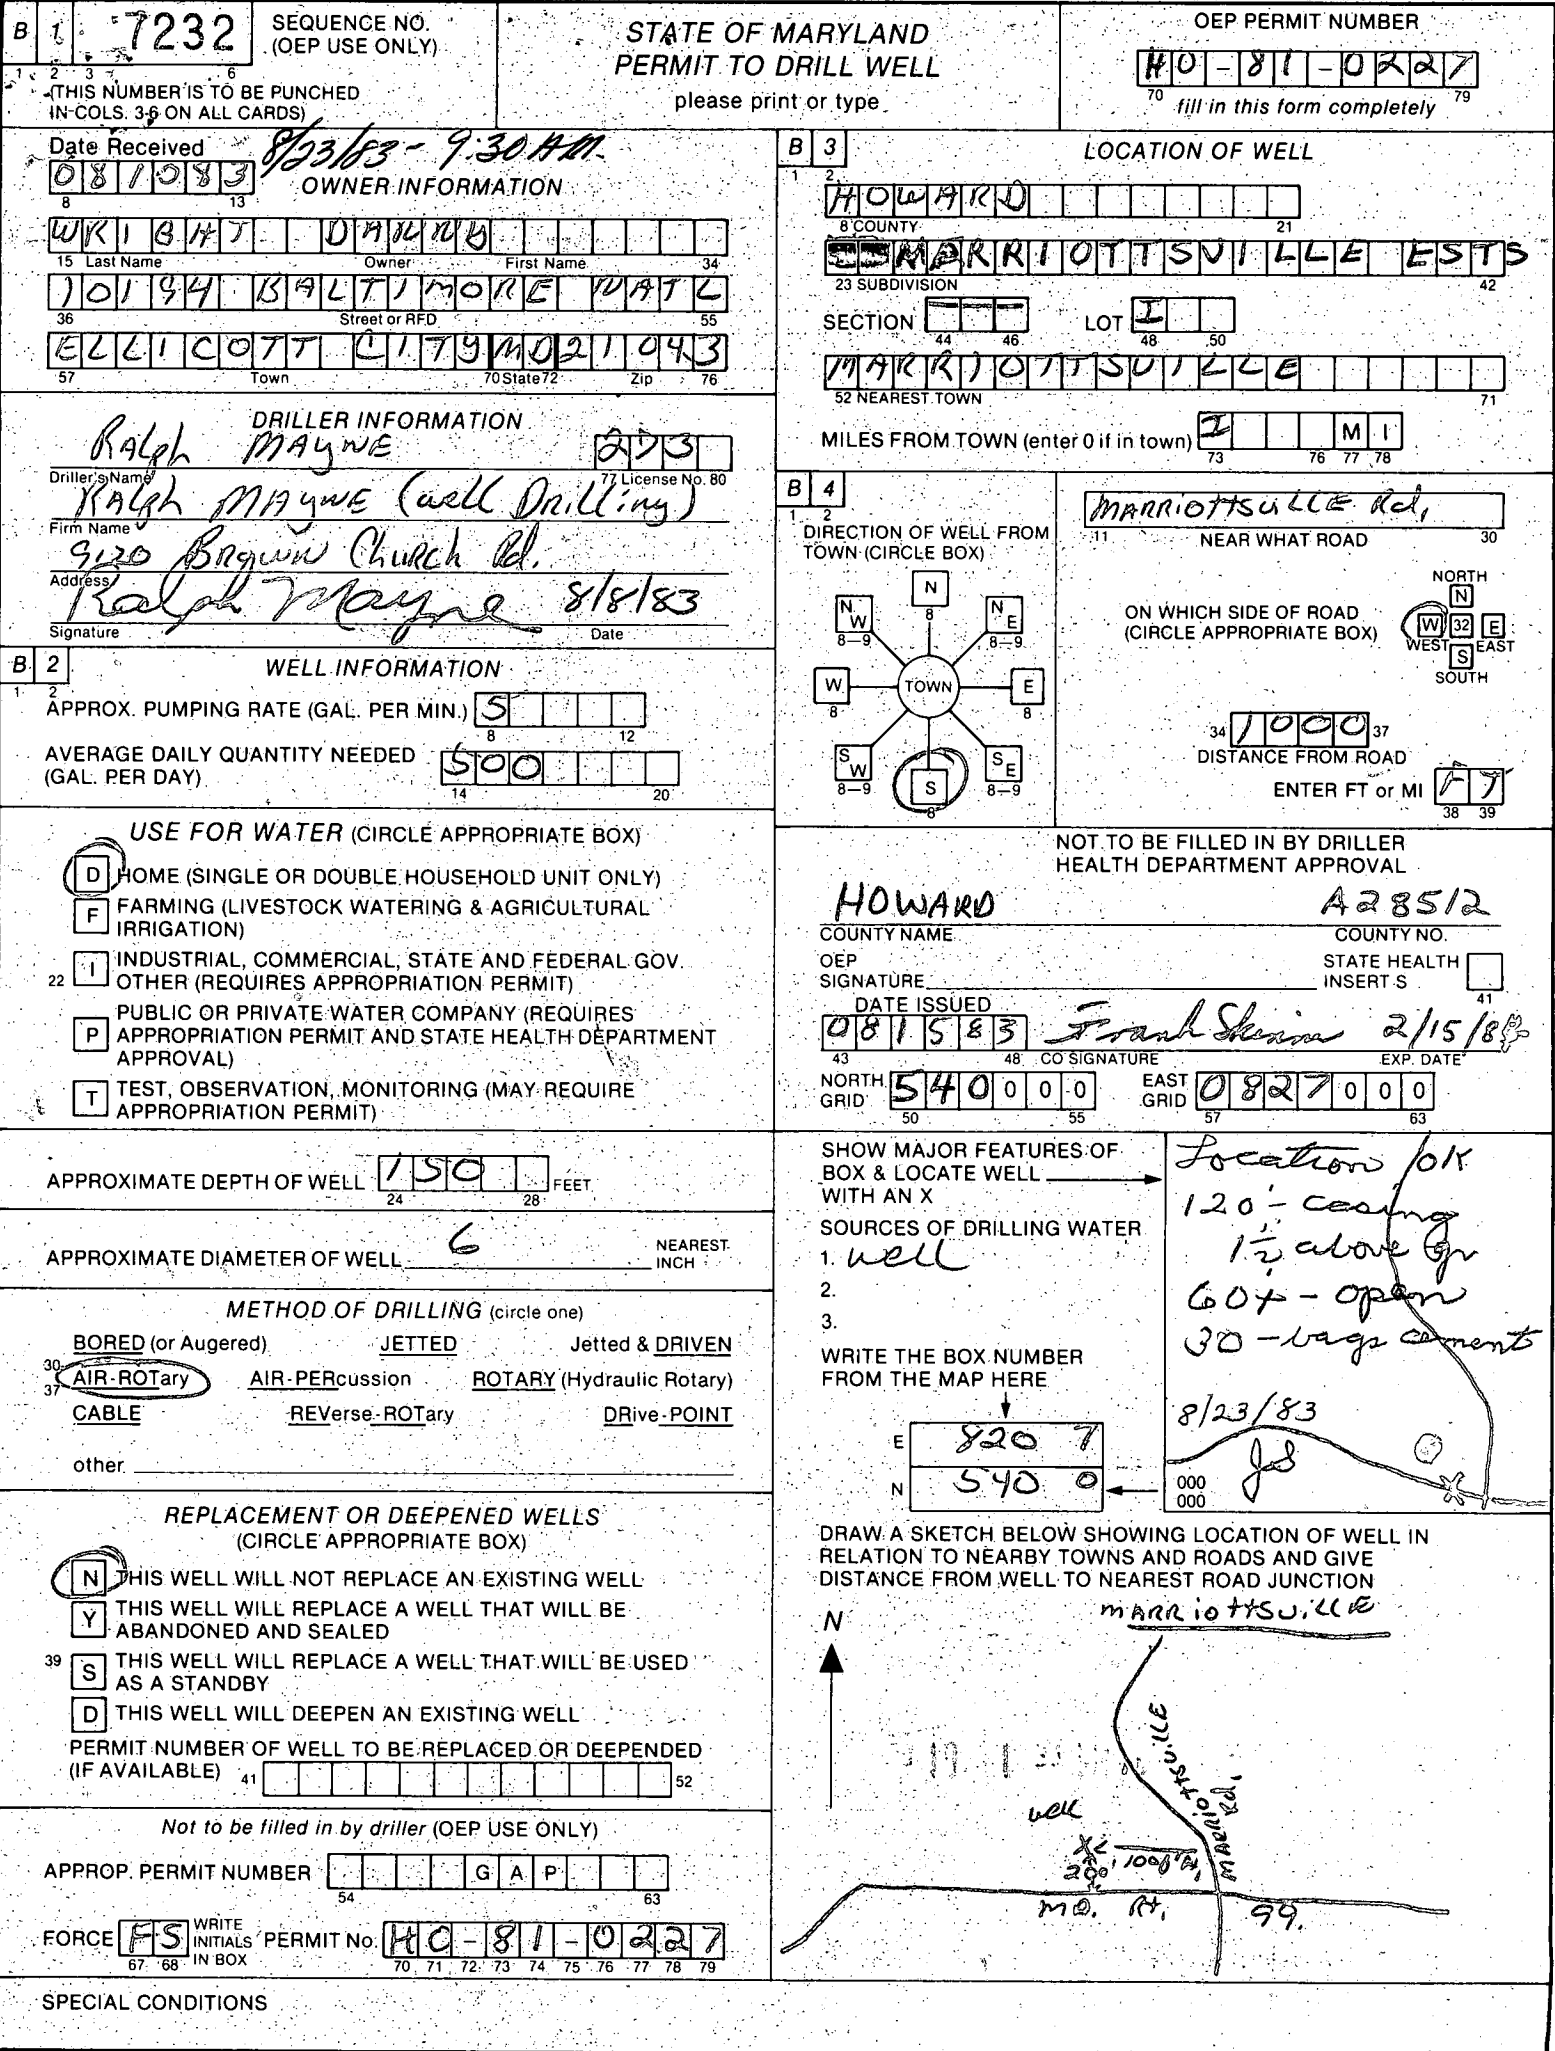 B 1 7232 SEQUENCE NO.
(OEP USE ONLY)
1 2 3 6
(THIS NUMBER IS TO BE PUNCHED
IN COLS. 3-6 ON ALL CARDS)
STATE OF MARYLAND
PERMIT TO DRILL WELL
please print or type
OEP PERMIT NUMBER
HO-81-0227
70 fill in this form completely 79
Date Received 8/23/83 - 9:30 AM.
081083
8 13
OWNER INFORMATION
WRIGHT DANNY
15 Last Name Owner First Name 34
10194 BALTIMORE NATL
36 Street or RFD 55
ELLICOTT CITY MD 21043
57 Town 70 State 72 Zip 76
DRILLER INFORMATION
Ralph MAYNE 273
Driller's Name 77 License No. 80
Ralph MAYNE (well Drilling)
Firm Name
9120 Brown Church Rd.
Address
Ralph Mayne 8/8/83
Signature Date
B 2 WELL INFORMATION
1 2
APPROX. PUMPING RATE (GAL. PER MIN.) 5
8 12
AVERAGE DAILY QUANTITY NEEDED
(GAL. PER DAY) 500
14 20
USE FOR WATER (CIRCLE APPROPRIATE BOX)
D HOME (SINGLE OR DOUBLE HOUSEHOLD UNIT ONLY)
F FARMING (LIVESTOCK WATERING & AGRICULTURAL
IRRIGATION)
22 I INDUSTRIAL, COMMERCIAL, STATE AND FEDERAL GOV.
OTHER (REQUIRES APPROPRIATION PERMIT)
P PUBLIC OR PRIVATE WATER COMPANY (REQUIRES
APPROPRIATION PERMIT AND STATE HEALTH DEPARTMENT
APPROVAL)
T TEST, OBSERVATION, MONITORING (MAY REQUIRE
APPROPRIATION PERMIT)
APPROXIMATE DEPTH OF WELL 150 FEET
24 28
APPROXIMATE DIAMETER OF WELL 6 NEAREST
INCH
METHOD OF DRILLING (circle one)
BORED (or Augered) JETTED Jetted & DRIVEN
30 37 AIR-ROTary AIR-PERcussion ROTARY (Hydraulic Rotary)
CABLE REVerse-ROTary DRive-POINT
other
REPLACEMENT OR DEEPENED WELLS
(CIRCLE APPROPRIATE BOX)
N THIS WELL WILL NOT REPLACE AN EXISTING WELL
Y THIS WELL WILL REPLACE A WELL THAT WILL BE
ABANDONED AND SEALED
39 S THIS WELL WILL REPLACE A WELL THAT WILL BE USED
AS A STANDBY
D THIS WELL WILL DEEPEN AN EXISTING WELL
PERMIT NUMBER OF WELL TO BE REPLACED OR DEEPENDED
(IF AVAILABLE) 41 52
Not to be filled in by driller (OEP USE ONLY)
APPROP. PERMIT NUMBER G A P
54 63
FORCE FS WRITE
INITIALS
IN BOX PERMIT No. HO-81-0227
67 68 70 71 72 73 74 75 76 77 78 79
SPECIAL CONDITIONS
B 3 LOCATION OF WELL
1 2
HOWARD
8 COUNTY 21
MARRIOTTSVILLE ESTS
23 SUBDIVISION 42
SECTION LOT I
44 46 48 50
MARRIOTTSVILLE
52 NEAREST TOWN 71
MILES FROM TOWN (enter 0 if in town) I M I
73 76 77 78
B 4
1 2
DIRECTION OF WELL FROM
TOWN (CIRCLE BOX)
N
8
NW NE
8-9 8-9
W TOWN E
8 8
SW SE
8-9 8-9
S
8
MARRIOTTSVILLE Rd,
11 NEAR WHAT ROAD 30
ON WHICH SIDE OF ROAD
(CIRCLE APPROPRIATE BOX)
NORTH
N
W 32 E
WEST EAST
S
SOUTH
34 1000 37
DISTANCE FROM ROAD
ENTER FT or MI FT
38 39
NOT TO BE FILLED IN BY DRILLER
HEALTH DEPARTMENT APPROVAL
HOWARD A28512
COUNTY NAME COUNTY NO.
OEP
SIGNATURE
STATE HEALTH
INSERT S
41
DATE ISSUED
081583 Frank Skinner 2/15/84
43 48 CO SIGNATURE EXP. DATE
NORTH
GRID 540000
50 55
EAST
GRID 0827000
57 63
SHOW MAJOR FEATURES OF
BOX & LOCATE WELL
WITH AN X
SOURCES OF DRILLING WATER
1. well
2.
3.
WRITE THE BOX NUMBER
FROM THE MAP HERE
E 820 7
N 540 0
000
000
Location / OK
120' - casing
1½ above gr
60+ - open
30 - bags cement
8/23/83
JS
DRAW A SKETCH BELOW SHOWING LOCATION OF WELL IN
RELATION TO NEARBY TOWNS AND ROADS AND GIVE
DISTANCE FROM WELL TO NEAREST ROAD JUNCTION
MARRIOTTSVILLE
N
MARRIOTTSVILLE Rd,
well
X
200' 1000 ft,
MD. Rt, 99.